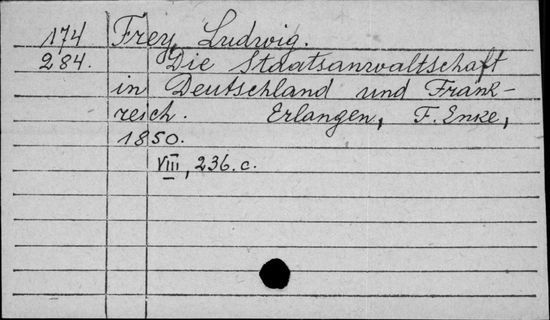 174 Frey, Ludwig.
284. Die Staatsanwaltschaft
in Deutschland und Frank-
reich. Erlangen, F. Enke,
1850.
VIII, 236. c.